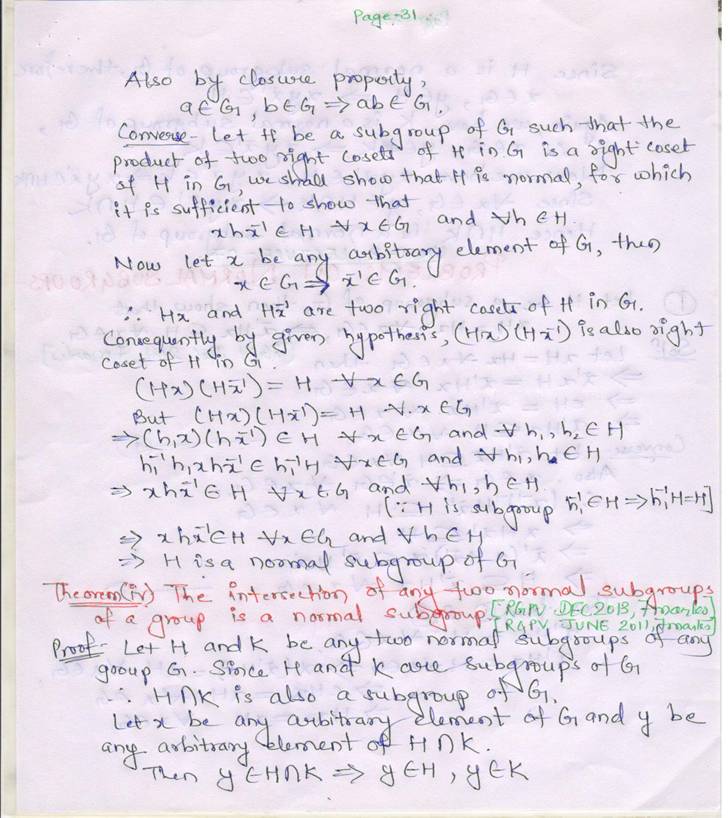 Page-31
Also by closure property,
a∈G, b∈G ⇒ ab∈G.
Converse- Let H be a subgroup of G such that the
product of two right cosets of H in G is a right coset
of H in G, we shall show that H is normal, for which
it is sufficient to show that
xhx⁻¹ ∈ H ∀ x∈G and ∀h ∈H.
Now let x be any arbitrary element of G, then
x∈G ⇒ x⁻¹∈G.
∴ Hx and Hx⁻¹ are two right cosets of H in G.
Consequently by given hypothesis, (Hx)(Hx⁻¹) is also right
coset of H in G.
(Hx)(Hx⁻¹) = H ∀ x∈G
But (Hx)(Hx⁻¹) = H ∀ x∈G
⇒(h₁x)(hx⁻¹) ∈ H ∀ x∈G and ∀ h₁,h₂∈H
h₁⁻¹h₁xhx⁻¹∈ h₁⁻¹H ∀x∈G and ∀h₁,h∈H
⇒ xhx⁻¹∈H ∀x∈G and ∀h₁,h∈H
[∵ H is subgroup h₁⁻¹∈H ⇒h₁⁻¹H=H]
⇒ xhx⁻¹∈H ∀x∈G and ∀h∈H
⇒ H is a normal subgroup of G
Theorem(iv) The intersection of any two normal subgroups
of a group is a normal subgroup. [RGPV DEC 2013, 7marks]
[RGPV JUNE 2011, 7marks]
Proof- Let H and K be any two normal subgroups of any
gooup G. Since H and K are subgroups of G
∴ H∩K is also a subgroup of G.
Let x be any arbitrary element of G and y be
any arbitrary element of H∩K.
Then y∈H∩K ⇒ y∈H, y∈K